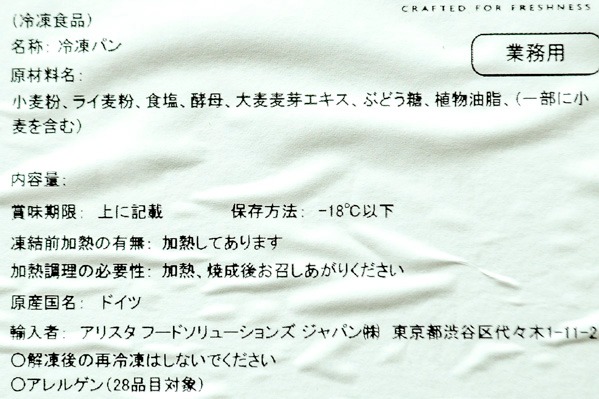 CRAFTED FOR FRESHNESS
(冷凍食品)
名称: 冷凍パン
業務用
原材料名:
小麦粉、ライ麦粉、食塩、酵母、大麦麦芽エキス、ぶどう糖、植物油脂、(一部に小
麦を含む)
内容量:
賞味期限: 上に記載 保存方法: -18℃以下
凍結前加熱の有無: 加熱してあります
加熱調理の必要性: 加熱、焼成後お召しあがりください
原産国名: ドイツ
輸入者: アリスタ フードソリューションズ ジャパン㈱ 東京都渋谷区代々木1-11-2
○解凍後の再冷凍はしないでください
○アレルゲン(28品目対象)